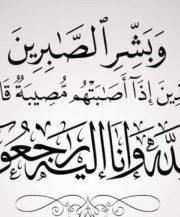 وَبَشِّرِ ٱلصَّٰبِرِينَ
ذِينَ إِذَآ أَصَٰبَتْهُم مُّصِيبَةٌ قَا
لله وإنا إليه راجعو